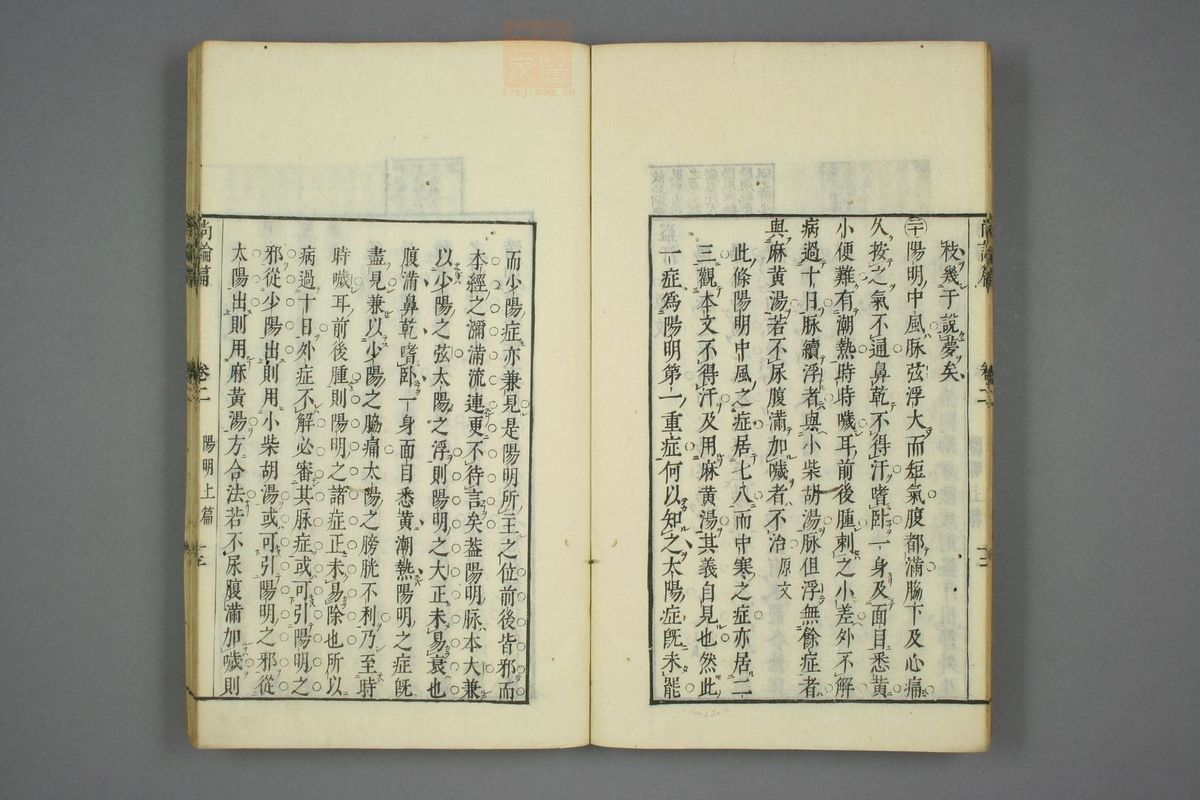 秡幾于說夢矣
二十陽明中風脉弦浮大而短氣腹都滿脇下及心痛
久按之氣不通鼻乾不得汗嗜卧一身及面目悉黃
小便難有潮熱時時噦耳前後腫刺之小差外不解
病過十日脉續浮者與小柴胡湯脉但浮無餘症者
與麻黃湯若不尿腹滿加噦者不治 原文
此條陽明中風之症居七八而中寒之症亦居二
三觀本文不得汗及用麻黃湯其義自見也然此
一症爲陽明第一重症何以知之太陽症旣未罷
而少陽症亦兼見是陽明所主之位前後皆邪而
本經之瀰滿流連更不待言矣葢陽明脉本大兼
以少陽之弦太陽之浮則陽明之大正未易衰也
腹滿鼻乾嗜卧一身面目悉黃潮熱陽明之症旣
盡見兼以少陽之脇痛太陽之膀胱不利乃至時
時噦耳前後腫則陽明之諸症正未易除也所以
病過十日外症不解必審其脉症或可引陽明之
邪從少陽出則用小柴胡湯或可引陽明之邪從
太陽出則用麻黃湯方合法若不尿腹滿加噦則
尚論篇 卷二 陽明上篇 十三
zysj.com.cn